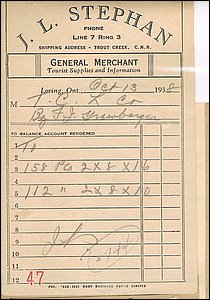 J. L. STEPHAN
PHONE
LINE 7 RING 3
SHIPPING ADDRESS - TROUT CREEK, C.N.R.
GENERAL MERCHANT
Tourist Supplies and Information
Loring, Ont., Oct 13 1938
M T. C. L. Co
By
TO BALANCE ACCOUNT RENDERED
1 To
2
3 158 Pcs 2 x 8 x 16
4
5 112 " 2 x 8 x 10
6
7
8
9
10
11
12 47